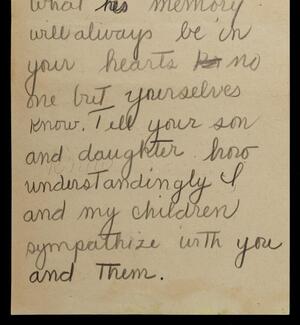 what his memory
will always be in
your hearts no
one but yourselves
know. Tell your son
and daughter how
understandingly I,
and my children
sympathize with you
and them.